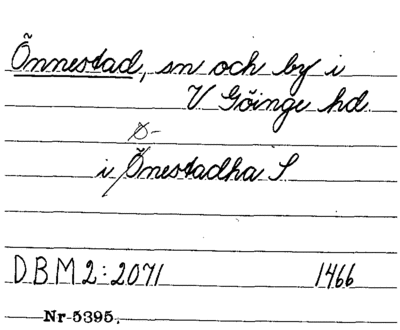 Önnestad, sn och by i
V Göinge hd.
Ø-
i Önestadha S
DBM 2:2071 1466
Nr 5395.